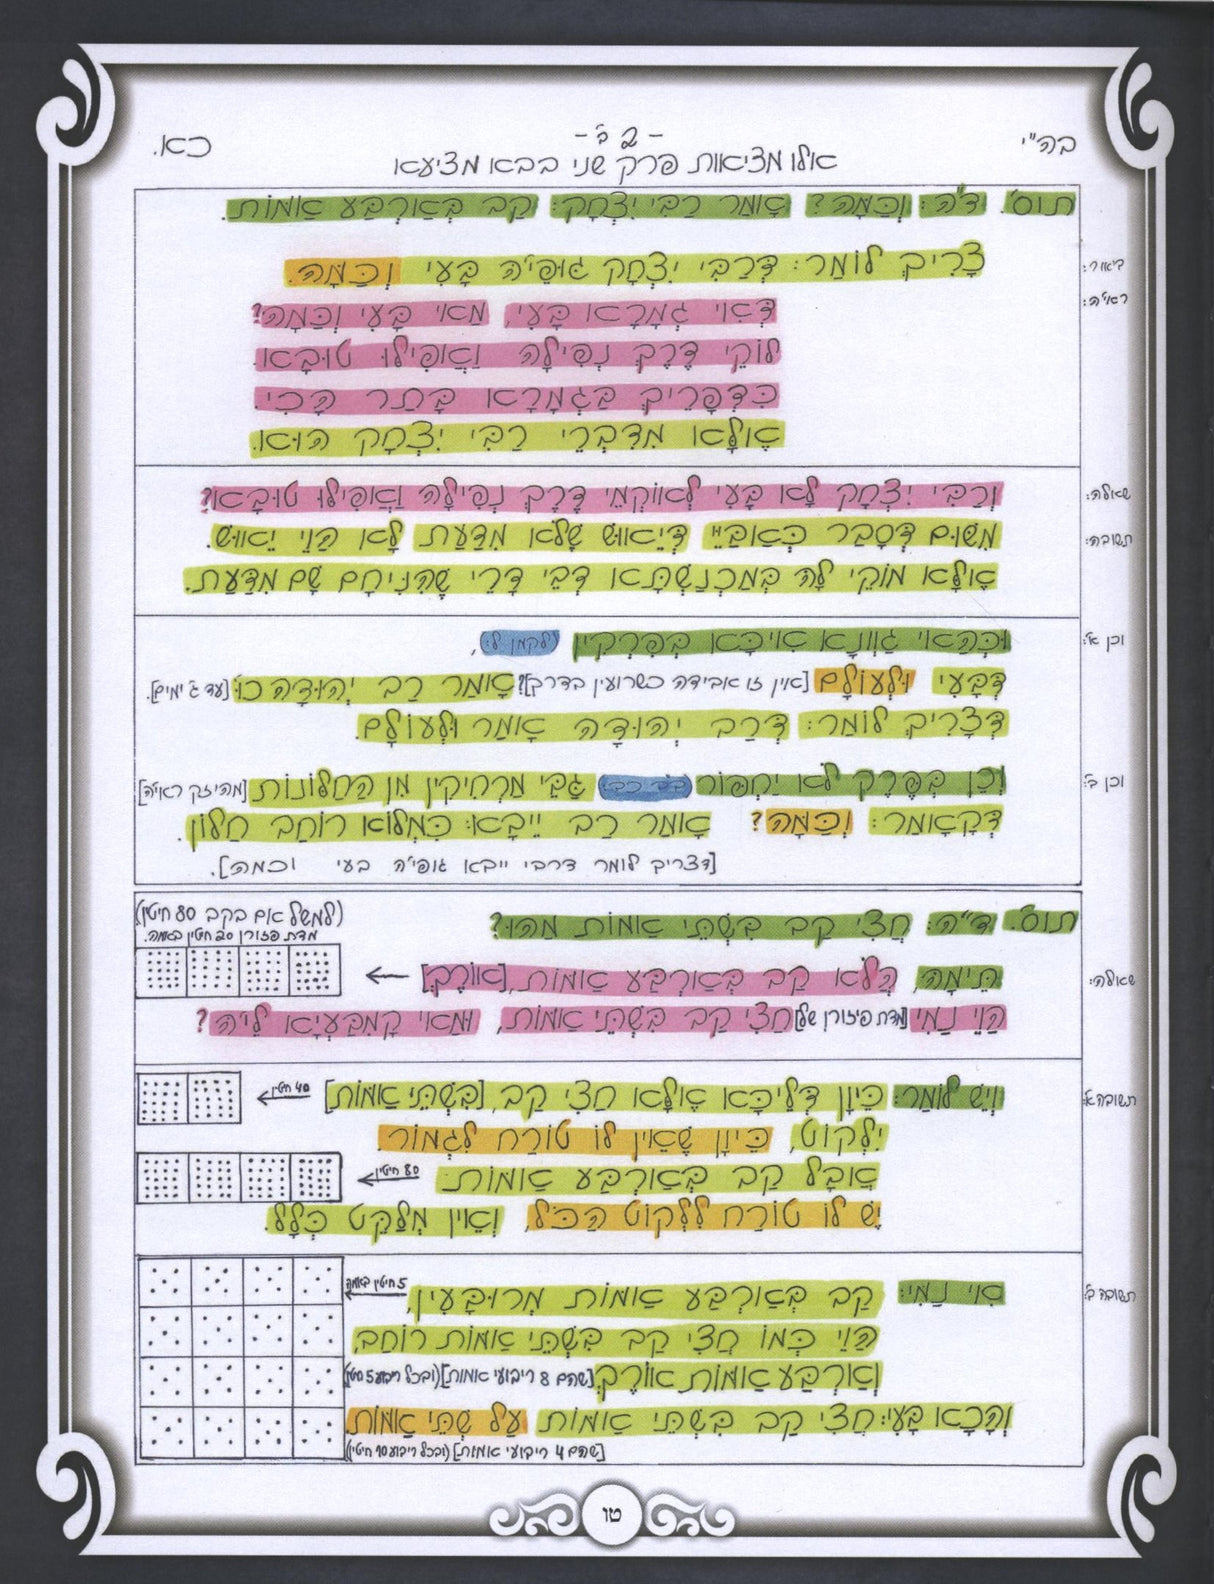 בה"י
- 2 ב' -
כא.
אילו מציאות פרק שני בבא מציעא
תוס'. ד"ה: וְכַמָּה? אָמַר רַבִּי יִצְחָק: קַב בְּאַרְבַּע אַמּוֹת.
ביאור: צָרִיךְ לוֹמַר: דְּרַבִּי יִצְחָק גּוּפֵי'ה בָּעֵי וְכַמָּה.
ראי'ה: דְּאִי גְּמָרָא בָּעֵי, מַאי בָּעֵי וְכַמָּה?
לוֹקֵי דֶּרֶךְ נְפִילָה וַאֲפִילוּ טוּבָא
כִּדְפָרֵיךְ בַּגְּמָרָא בָּתַר הָכִי.
אֶילָּא מִדִּבְרֵי רַבִּי יִצְחָק הוּא.
שאלה: וְרַבִּי יִצְחָק לָא בָּעֵי לְאוֹקְמֵי דֶּרֶךְ נְפִילָה וַאֲפִילוּ טוּבָא?
תשובה: מִשּׁוּם דְּסָבַר כְּאַבַּיֵּי דְּיֵאוּשׁ שֶׁלֹּא מִדַּעַת לָא הֲוֵי יֵאוּשׁ.
אֶילָּא מוֹקֵי לָהּ בְּמַכְנַשְׁתָּא דְּבֵי דָּרֵי שֶׁהִנִּיחָם שָׁם מִדַּעַת.
וכן א': וּכְהַאי גַּוְונָא אִיכָּא בְּפִרְקִין לקמן ל:,
דְּבָעֵי וּלְעוֹלָם [אין זו אבידה כשרועין בדרך]? אָמַר רַב יְהוּדָה כּוּ' [עד ג' ימים].
דְּצָרִיךְ לוֹמַר: דְּרַב יְהוּדָה אָמַר וּלְעוֹלָם.
וכן ב': וְכֵן בְּפֶרֶק לֹא יַחְפּוֹר גַּבֵּי מַרְחִיקִין מִן הַחַלּוֹנוֹת [מהיזק ראי'ה]
דְּקָאָמַר: וְכַמָּה? אָמַר רַב יֵיבָא: כִּמְלוֹא רוֹחַב חַלּוֹן.
[דצריך לומר דרבי ייבא גופי'ה בעי וכמה].
תוס'. ד"ה: חֲצִי קַב בִּשְׁתֵּי אַמּוֹת מַהוּ?
(למשל אם בקב 80 חיטין)
מדת פזורן 20 חיטין באמה.
שאלה: תֵּימָה, הֲלֹא קַב בְּאַרְבַּע אַמּוֹת, [אוֹרֶךְ]
הֲוֵי נַמִּי [מדת פיזורן של] חֲצִי קַב בִּשְׁתֵּי אַמּוֹת, וּמַאי קָמִבַּעְיָא לֵי'הּ?
תשובה א': וְיֵשׁ לוֹמַר: כֵּיוָן דְּלֵיכָּא אֶילָּא חֲצִי קַב, [בִּשְׁתֵּי אַמּוֹת] 40 חיטין
יִלְקוֹט, כֵּיוָן שֶׁאֵין לוֹ טוֹרַח לִגְמוֹר.
אֲבָל קַב בְּאַרְבַּע אַמּוֹת: 80 חיטין
יֵשׁ לוֹ טוֹרַח לִלְקוֹט הַכֹּל, וְאֵין מְלַקֵּט כְּלָל.
תשובה ב': אִי נַמִי: קַב בְּאַרְבַּע אַמּוֹת מְרוּבָּעִין, 5 חיטין באמה
הֲוֵי כְּמוֹ חֲצִי קַב בִּשְׁתֵּי אַמּוֹת רוֹחַב,
וְאַרְבַּע אַמּוֹת אוֹרֶךְ [שהם 8 ריבועי אמות] (ובכל ריבוע 5 חטין)
וְהָכָא בָּעֵי: חֲצִי קַב בִּשְׁתֵּי אַמּוֹת עַל שְׁתֵּי אַמּוֹת
[שהם 4 ריבועי אמות] (ובכל ריבוע 10 חיטין)
טו